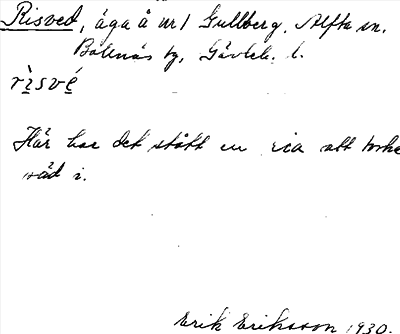 Risved, äga å nr 1 Gullberg, Alfta sn.
Bollnäs tg, Gävleb. l.
rìsvé
Här har det stått en ria att torka
säd i.
Erik Eriksson 1930.